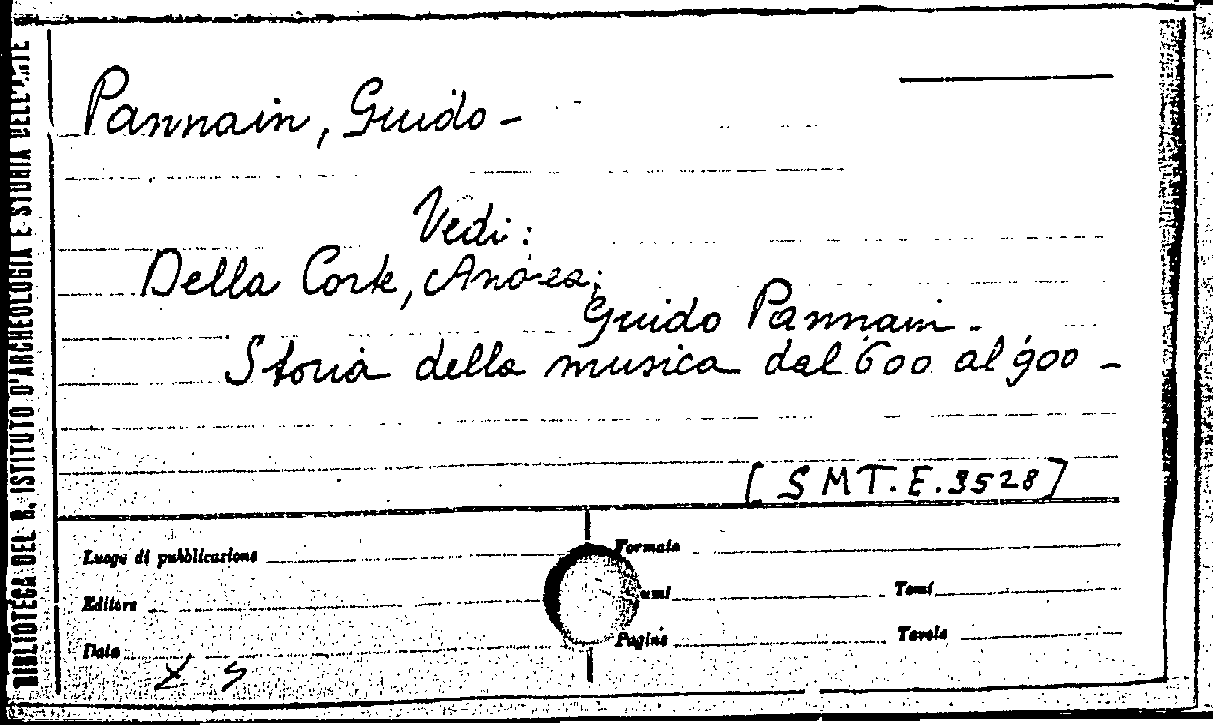 BIBLIOTECA DEL R. ISTITUTO D'ARCHEOLOGIA E STORIA DELL'ARTE
Pannain, Guido -
Vedi:
Della Corte, Andrea;
Guido Pannain -
Storia della musica dal 600 al 900 -
[SMT.E.3528]
Luogo di pubblicazione
Formato
Editore
umi
Tomi
Data
Pagine
Tavole